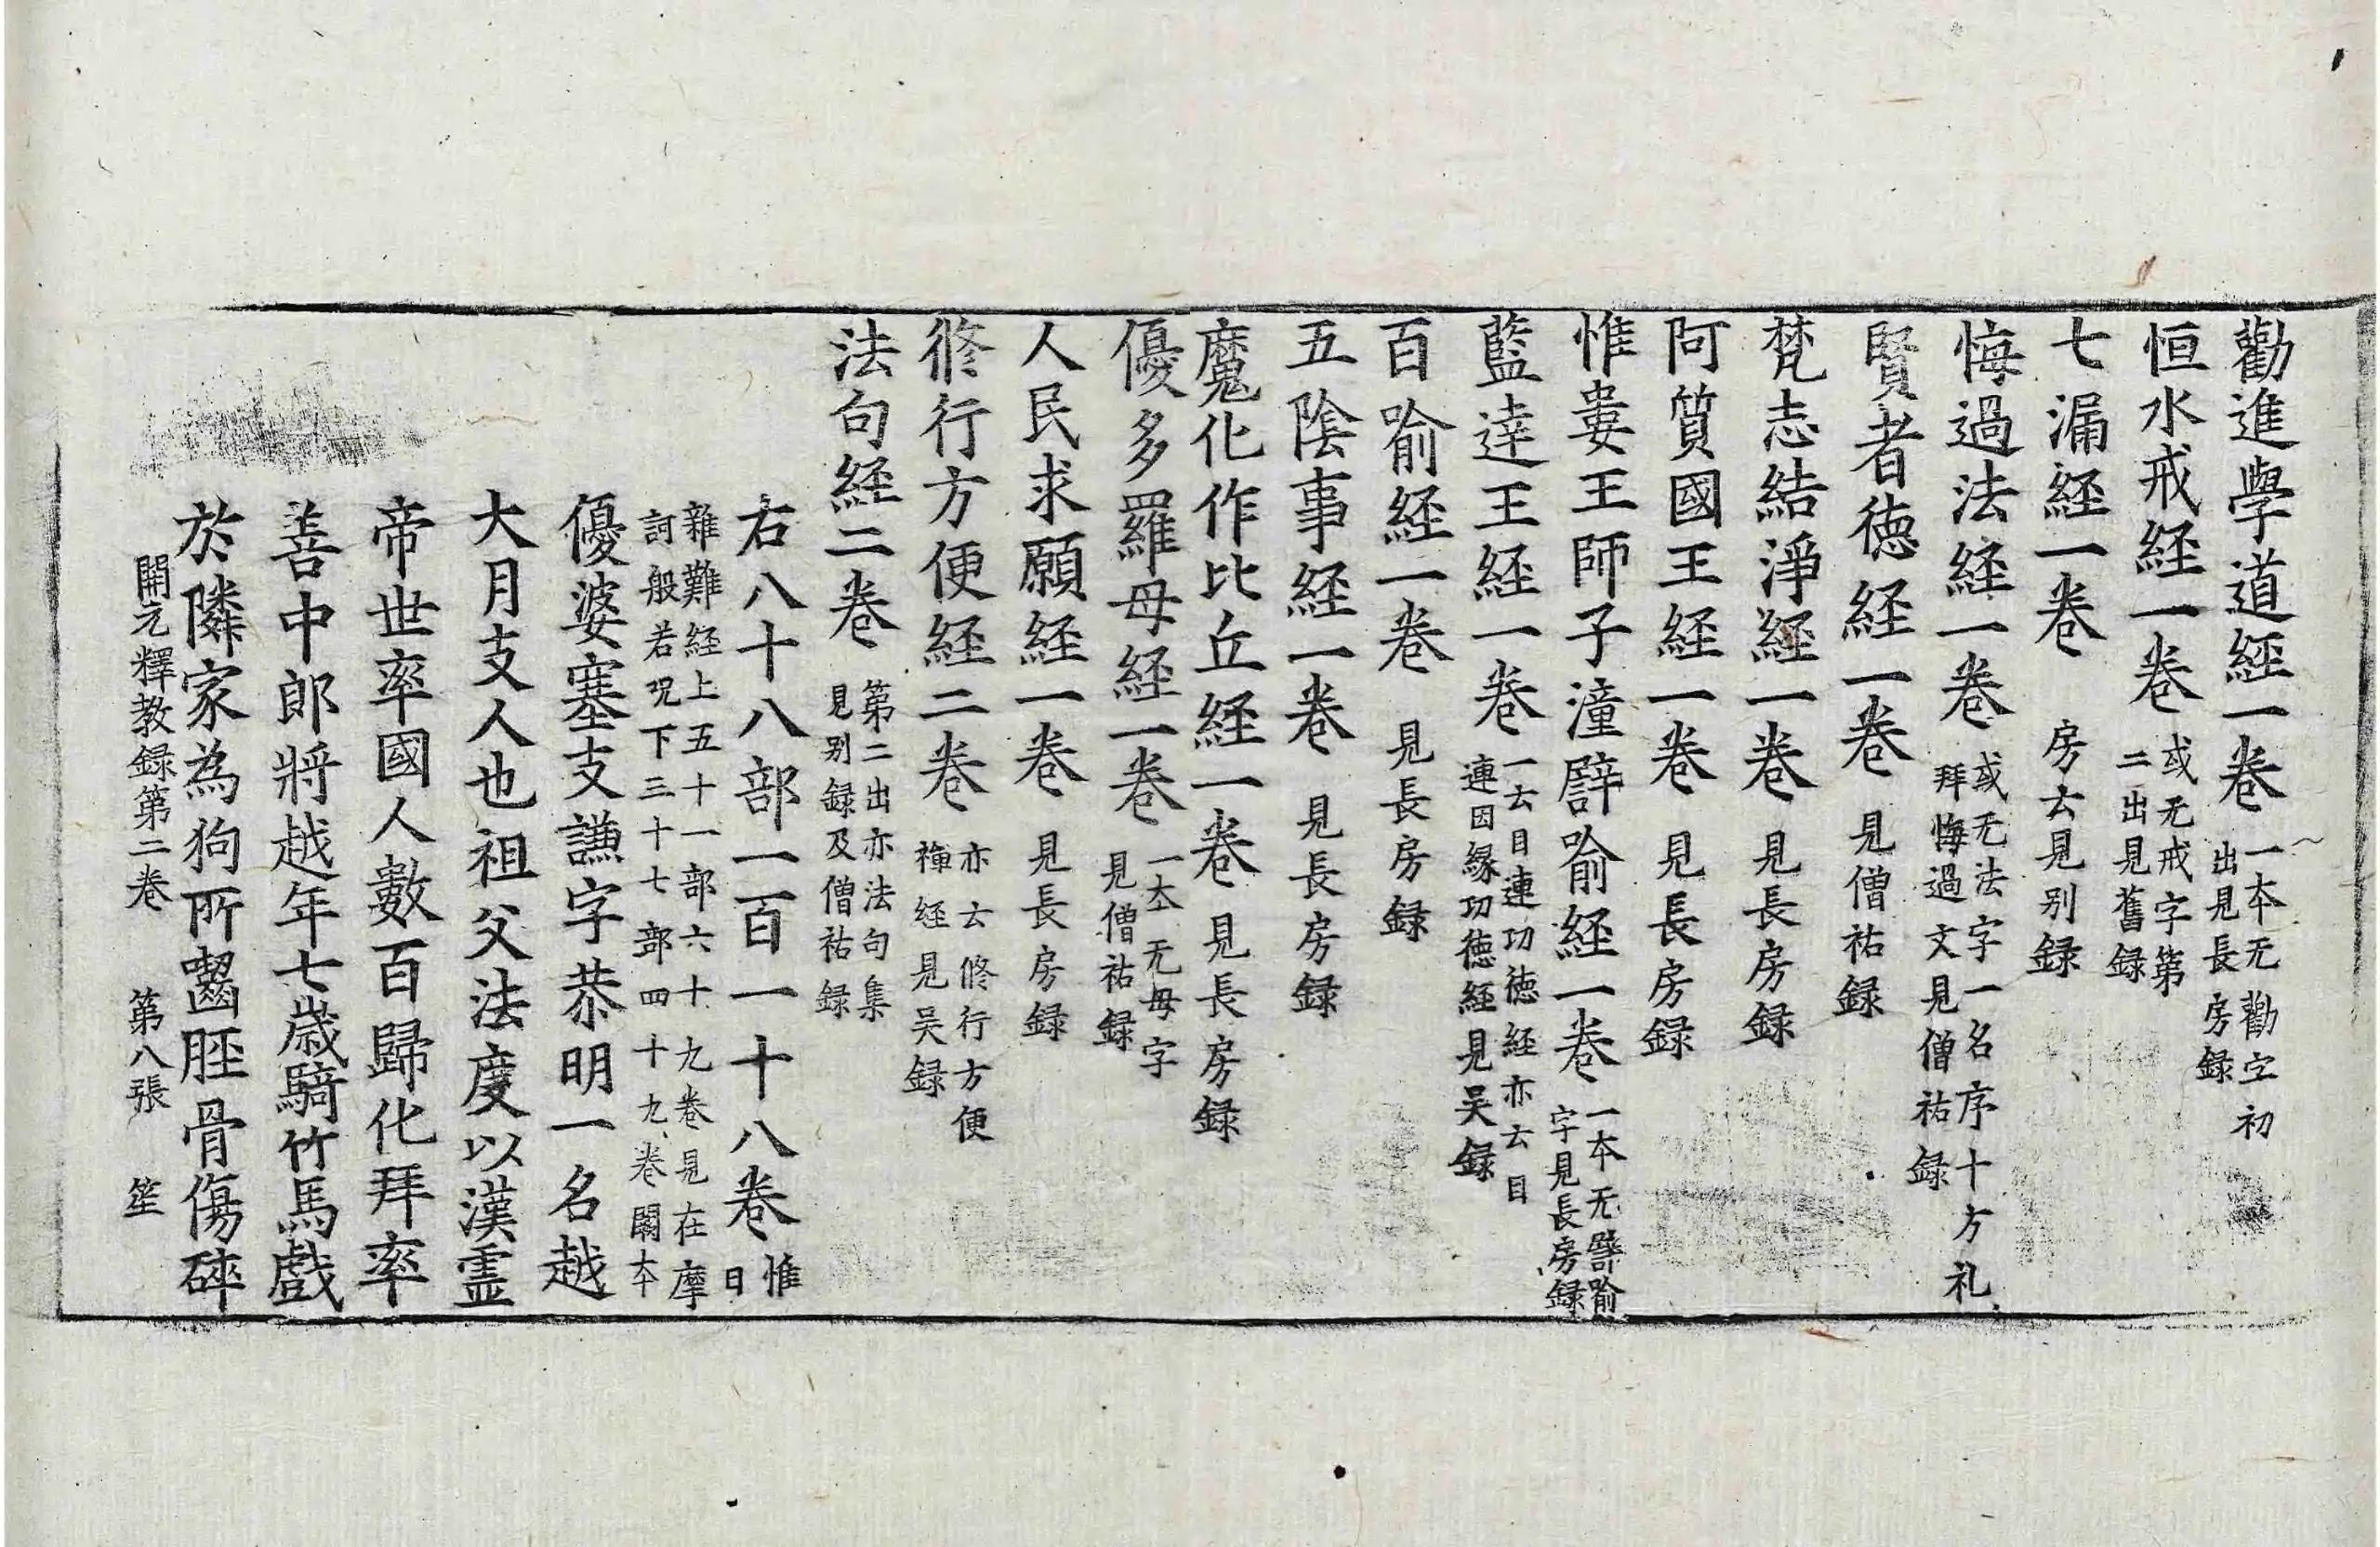 勸進學道経一卷 一本无勸字初出見長房録
恒水戒経一卷 或无戒字第二出見舊録
七漏経一卷 房云見别録
悔過法経一卷 或无法字一名序十方礼拜悔過文見僧祐録
賢者德経一卷 見僧祐録
梵志結淨経一卷 見長房録
阿質國王経一卷 見長房録
惟婁王師子潼譬喻経一卷 一本无譬喻字見長房録
藍達王経一卷 一云目連功德経亦云目連因縁功德経見吴録
百喻経一卷 見長房録
五陰事経一卷 見長房録
魔化作比丘経一卷 見長房録
優多羅母経一卷 一本无母字見僧祐録
人民求願経一卷 見長房録
修行方便経二卷 亦云修行方便禪経見吴録
法句経二卷 第二出亦法句集見别録及僧祐録
右八十八部一百一十八卷 惟日
雜難経上五十一部六十九卷見在摩訶般若呪下三十七部四十九卷闕本
優婆塞支謙字恭明一名越
大月支人也祖父法度以漢霊
帝世率國人數百歸化拜率
善中郎將越年七歳騎竹馬戲
於隣家為狗所齧脛骨傷碎
開元釋教録第二卷 第八張 笙